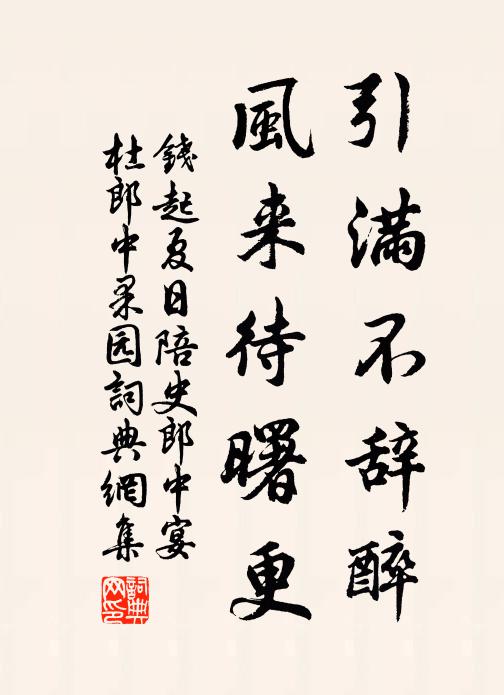 引滿不辞醉
風来待曙更
錢起夏日陪史郎中宴
杜郎中果园詞典網集
詞典網印